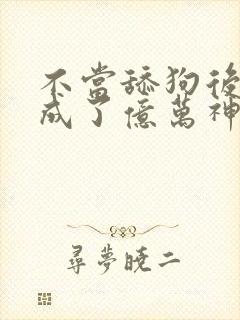 不當舔狗後
成了億萬神
尋夢曉二